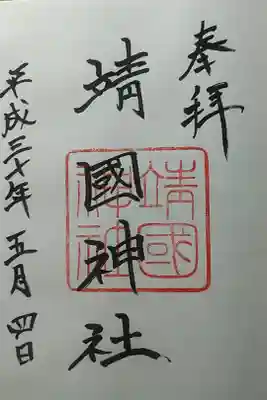 奉拜
靖國神社
靖國
神社
平成三十年 五月 四日